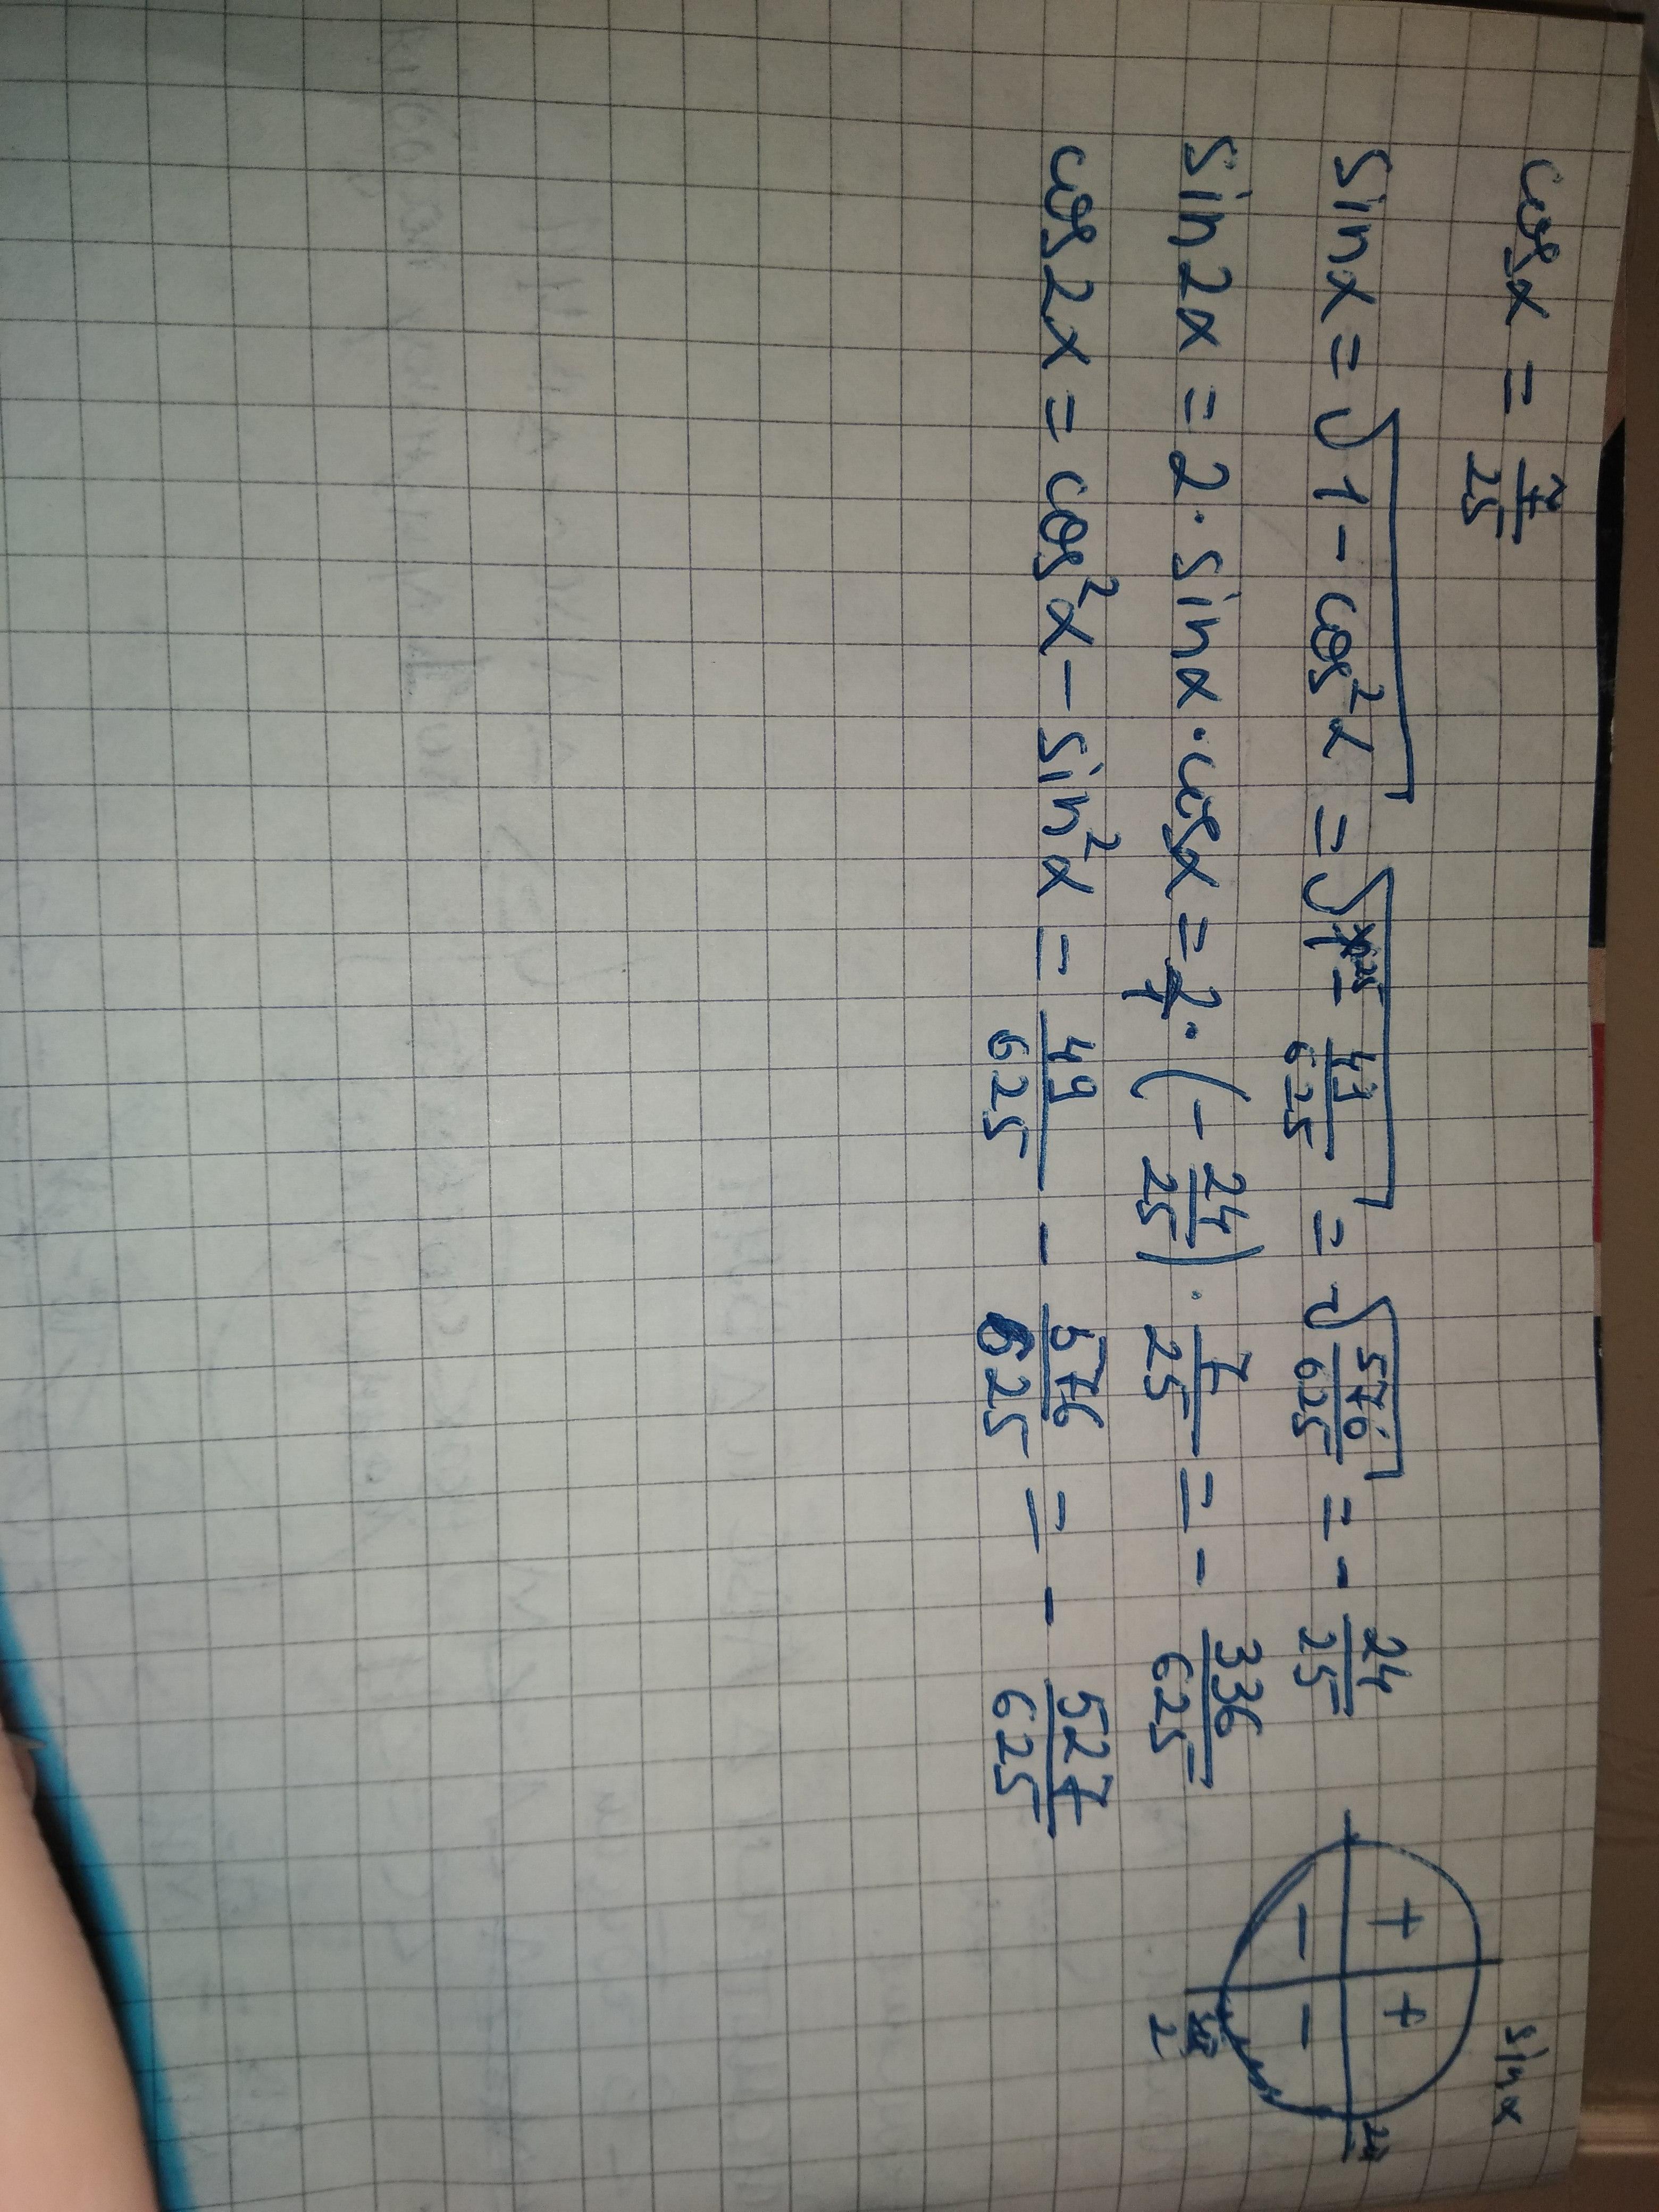 cos α = 7/25
sin α = √(1 - cos²α) = √(1 - 49/625) = √(576/625) = - 24/25
sin 2α = 2 · sin α · cos α = 2/1 · (- 24/25) · 7/25 = - 336/625
cos 2α = cos²α - sin²α = 49/625 - 576/625 = - 527/625
sin α
+ +
- -
3π/2
2π